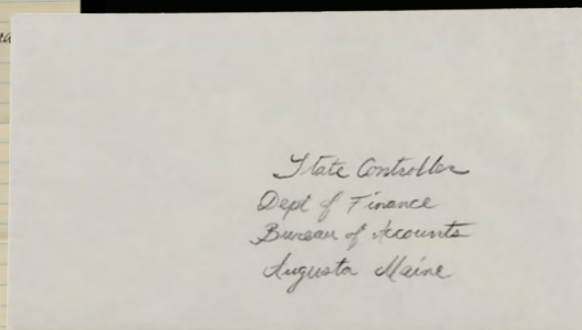 State Controller
Dept of Finance
Bureau of Accounts
Augusta Maine